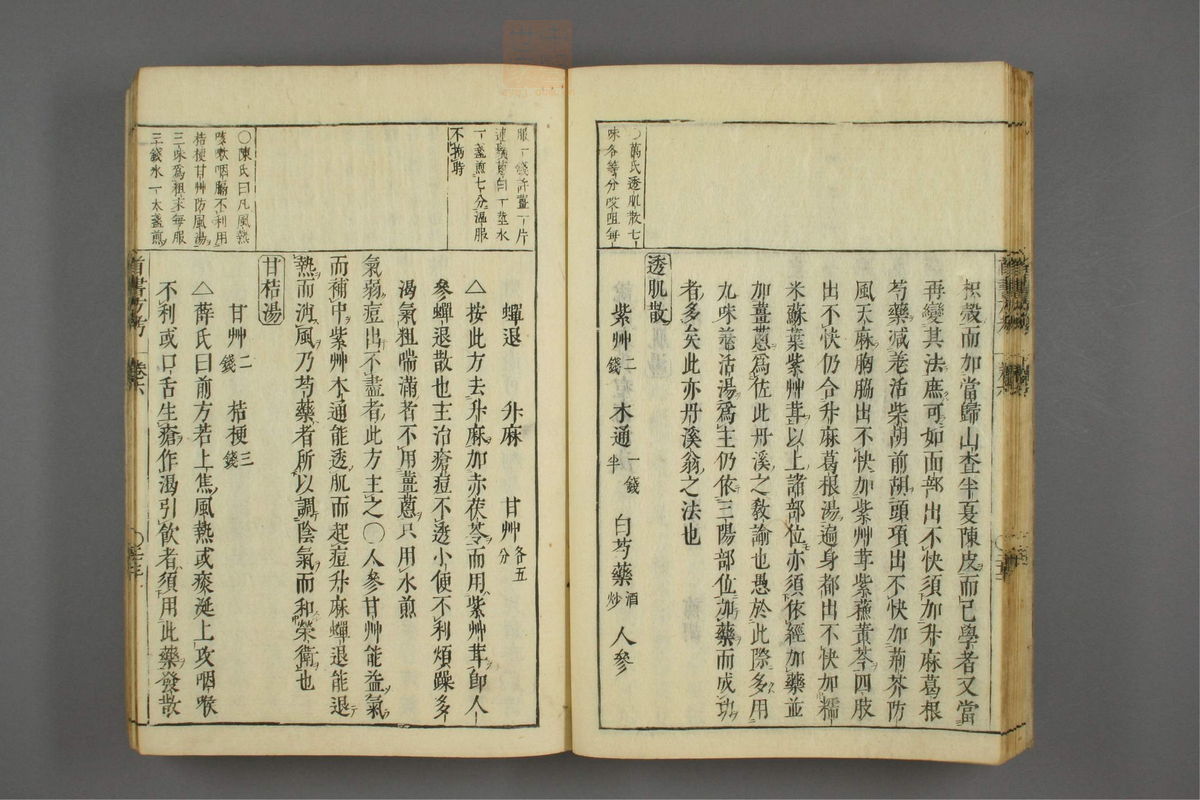 ○萬氏透肌散七
味各等分㕮咀每
枳殼而加當歸山查半夏陳皮而已學者又當
再變其法庶可如面部出不快須加升麻葛根
芍藥減羗活柴胡前胡頭項出不快加荊芥防
風天麻胸脇出不快加紫艸茸紫蘓黃芩四肢
出不快仍合升麻葛根湯遍身都出不快加糯
米蘇葉紫艸茸以上諸部位亦須依經加藥並
加薑蔥爲佐此丹溪之敎諭也愚於此際多用
九味羗活湯爲主仍依三陽部位加藥而成功
者多矣此亦丹溪翁之法也
透肌散
紫艸二錢 木通一錢半 白芍藥酒炒 人參
服一錢許薑一片
葱白一莖水
一盞煎七分溫服
不拘時
○陳氏曰凡風熱
咳嗽咽膈不利用
桔梗甘艸防風湯
三味爲粗末每服
三錢水一大盞煎
蟬退 升麻 甘艸各五分
△按此方去升麻加赤茯苓而用紫艸茸卽人
參蟬退散也主治瘡痘不透小便不利煩躁多
渴氣粗喘滿者不用薑蔥只用水煎
氣弱痘出不盡者此方主之○人參甘艸能益氣
而補中紫艸木通能透肌而起痘升麻蟬退能退
熱而消風乃芍藥者所以調陰氣而和榮衛也
甘桔湯
甘艸二錢 桔梗三錢
△薛氏曰前方若上焦風熱或痰涎上攻咽喉
不利或口舌生瘡作渴引飲者須用此藥發散
首書方考 卷六